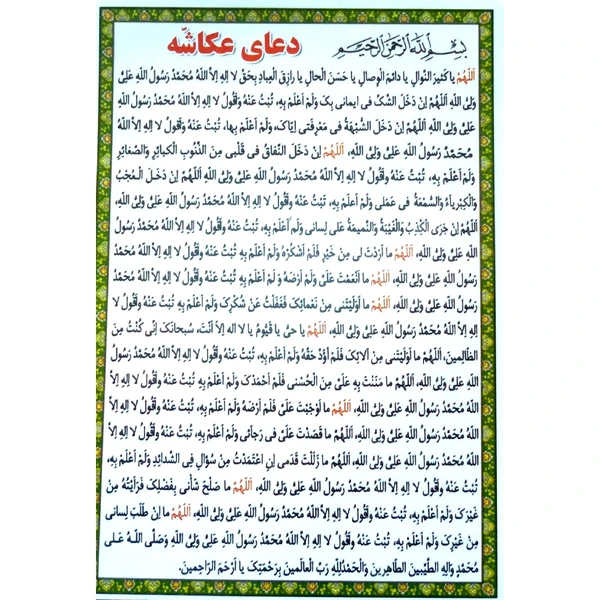 بِسْمِ اللهِ الرَّحْمنِ الرَّحيمِ
دعای عکاشّه
اَللّهُمَّ یا کَثیرَ النَّوالِ یا دائِمَ الْوِصالِ یا حَسَنَ الْحالِ یا رازِقَ الْعِبادِ بِحَقِّ لا اِلهَ اِلاَّ اللهُ مُحَمَّدٌ رَسُولُ اللهِ عَلِیٌّ
وَلِیُّ اللهِ اَللّهُمَّ اِنْ دَخَلَ الشَّکُّ فی ایمانی بِکَ وَلَمْ اَعْلَمْ بِهِ، تُبْتُ عَنْهُ وَاَقُولُ لا اِلهَ اِلاَّ اللهُ مُحَمَّدٌ رَسُولُ اللهِ
عَلِیٌّ وَلِیُّ اللهِ اَللّهُمَّ اِنْ دَخَلَ الشُّبْهَةُ فی مَعْرِفَتی اِیّاکَ، وَلَمْ اَعْلَمْ بِها، تُبْتُ عَنْهُ وَاَقُولُ لا اِلهَ اِلاَّ اللهُ
مُحَمَّدٌ رَسُولُ اللهِ عَلِیٌّ وَلِیُّ اللهِ، اَللّهُمَّ اِنْ دَخَلَ النِّفاقُ فی قَلْبی مِنَ الذُّنُوبِ الْکَبائِرِ وَالصَّغائِرِ
وَلَمْ اَعْلَمْ بِهِ، تُبْتُ عَنْهُ وَاَقُولُ لا اِلهَ اِلاَّ اللهُ مُحَمَّدٌ رَسُولُ اللهِ عَلِیٌّ وَلِیُّ اللهِ اَللّهُمَّ اِنْ دَخَلَ الْعُجْبُ
وَالْکِبْرِیآءُ وَالسُّمْعَةُ فی عَمَلی وَلَمْ اَعْلَمْ بِهِ، تُبْتُ عَنْهُ وَاَقُولُ لا اِلهَ اِلاَّ اللهُ مُحَمَّدٌ رَسُولُ اللهِ عَلِیٌّ وَلِیُّ اللهِ
اَللّهُمَّ اِنْ جَرَی الْکِذْبُ وَالْغَیْبَةُ وَالنَّمیمَةُ عَلی لِسانی وَلَمْ اَعْلَمْ بِهِ، تُبْتُ عَنْهُ وَاَقُولُ لا اِلهَ اِلاَّ اللهُ مُحَمَّدٌ رَسُولُ
اللهِ عَلِیٌّ وَلِیُّ اللهِ، اَللّهُمَّ ما اَرَدْتَ لی مِنْ خَیْرٍ فَلَمْ اَشْکُرْهُ وَلَمْ اَعْلَمْ بِهِ، تُبْتُ عَنْهُ وَاَقُولُ لا اِلهَ اِلاَّ اللهُ مُحَمَّدٌ
رَسُولُ اللهِ عَلِیٌّ وَلِیُّ اللهِ، اَللّهُمَّ ما اَنْعَمْتَ عَلَیَّ وَلَمْ اَرْضَهُ وَ لَمْ اَعْلَمْ بِهِ تُبْتُ عَنْهُ وَاَقُولُ لا اِلهَ اِلاَّ اللهُ مُحَمَّدٌ
رَسُولُ اللهِ عَلِیٌّ وَلِیُّ اللهِ، اَللّهُمَّ ما اَوْلَیْتَنی مِنْ نَعْمائِکَ فَغَفَلْتُ عَنْ شُکْرِکَ وَلَمْ اَعْلَمْ بِهِ، تُبْتُ عَنْهُ وَاَقُولُ لا
اِلهَ اِلاَّ اللهُ مُحَمَّدٌ رَسُولُ اللهِ عَلِیٌّ وَلِیُّ اللهِ، اَللّهُمَّ یا حَیُّ یا قَیُّومُ یا لا اله اِلاّ اَنْتَ، سُبحانَکَ اِنّی کُنْتُ مِنَ
الظّالِمینَ، اَللّهُمَّ ما اَوْلَیْتَنی مِنْ آلائِکَ فَلَمْ اُؤَدِّ حَقَّهُ وَلَمْ اَعْلَمْ بِهِ، تُبْتُ عَنْهُ وَاَقُولُ لا اِلهَ اِلاَّ اللهُ مُحَمَّدٌ رَسُولُ
اللهِ عَلِیٌّ وَلِیُّ اللهِ، اَللّهُمَّ ما مَنَنْتَ بِهِ عَلَیَّ مِنَ الْحُسْنی فَلَمْ اَحْمَدْکَ وَلَمْ اَعْلَمْ بِهِ، تُبْتُ عَنْهُ وَاَقُولُ لا اِلهَ اِلاَّ
اللهُ مُحَمَّدٌ رَسُولُ اللهِ عَلِیٌّ وَلِیُّ اللهِ، اَللّهُمَّ ما اَوْجَبْتَ عَلَیَّ فَلَمْ اَرْضَهُ وَلَمْ اَعْلَمْ بِهِ، تُبْتُ عَنْهُ وَاَقُولُ لا اِلهَ اِلاَّ
اللهُ مُحَمَّدٌ رَسُولُ اللهِ عَلِیٌّ وَلِیُّ اللهِ، اَللّهُمَّ ما قَصَدْتَ عَلَیَّ فی رَجائی وَلَمْ اَعْلَمْ بِهِ، تُبْتُ عَنْهُ وَاَقُولُ لا اِلهَ اِلاَّ
اللهُ مُحَمَّدٌ رَسُولُ اللهِ عَلِیٌّ وَلِیُّ اللهِ، اَللّهُمَّ ما زَلَّتْ قَدَمی اِنِ اعْتَمَدْتُ مِنْ سُؤالٍ فِی الشَّدائِدِ وَلَمْ اَعْلَمْ بِهِ،
تُبْتُ عَنْهُ وَاَقُولُ لا اِلهَ اِلاَّ اللهُ مُحَمَّدٌ رَسُولُ اللهِ عَلِیٌّ وَلِیُّ اللهِ، اَللّهُمَّ ما صَلَحَ شَأنی بِفَضْلِکَ فَرَاَیْتُهُ مِنْ
غَیْرِکَ وَلَمْ اَعْلَمْ بِهِ، تُبْتُ عَنْهُ وَاَقُولُ لا اِلهَ اِلاَّ اللهُ مُحَمَّدٌ رَسُولُ اللهِ عَلِیٌّ وَلِیُّ اللهِ، اَللّهُمَّ ما اِنْ طَلَبَ لِسانی
مِنْ غَیْرِکَ وَلَمْ اَعْلَمْ بِهِ، تُبْتُ عَنْهُ وَاَقُولُ لا اِلهَ اِلاَّ اللهُ مُحَمَّدٌ رَسُولُ اللهِ عَلِیٌّ وَلِیُّ اللهِ وَصَلَّی اللهُ عَلی
مُحَمَّدٍ وَالِهِ الطَّیِّبینَ الطّاهِرینَ وَالْحَمْدُلِلّهِ رَبِّ الْعالَمینَ بِرَحْمَتِکَ یا اَرْحَمَ الرّاحِمینَ.